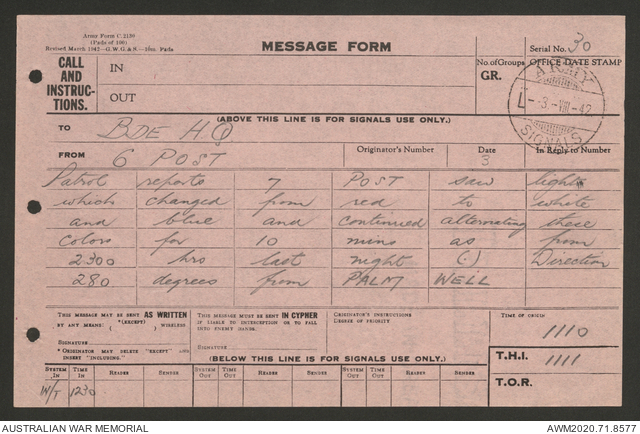 Army Form C.2130
(Pads of 100)
Revised March 1942—G.W.G.&S.—10m. Pads
MESSAGE FORM
Serial No. 30
CALL AND INSTRUC-TIONS.
IN
OUT
No. of Groups
GR.
OFFICE DATE STAMP
ARMY
L -3.-VIII-42
SIGNALS
(ABOVE THIS LINE IS FOR SIGNALS USE ONLY.)
TO BDE HQ
FROM 6 POST
Originator's Number
Date
3
In Reply to Number
Patrol reports 7 POST saw light
which changed from red to white
and blue and continued alternating these
colors for 10 mins as from
2300 hrs last night (.) Direction
280 degrees from PALM WELL
THIS MESSAGE MAY BE SENT AS WRITTEN
BY ANY MEANS. (*(EXCEPT) ) WIRELESS
SIGNATURE
* ORIGINATOR MAY DELETE "EXCEPT" AND
INSERT "INCLUDING."
THIS MESSAGE MUST BE SENT IN CYPHER
IF LIABLE TO INTERCEPTION OR TO FALL
INTO ENEMY HANDS.
SIGNATURE
ORIGINATOR'S INSTRUCTIONS
DEGREE OF PRIORITY
TIME OF ORIGIN
1110
(BELOW THIS LINE IS FOR SIGNALS USE ONLY.)
T.H.I. 1111
T.O.R.
SYSTEM IN TIME IN READER SENDER SYSTEM OUT TIME OUT READER SENDER SYSTEM OUT TIME OUT READER SENDER
W/T 1230
AUSTRALIAN WAR MEMORIAL
AWM2020.71.8577